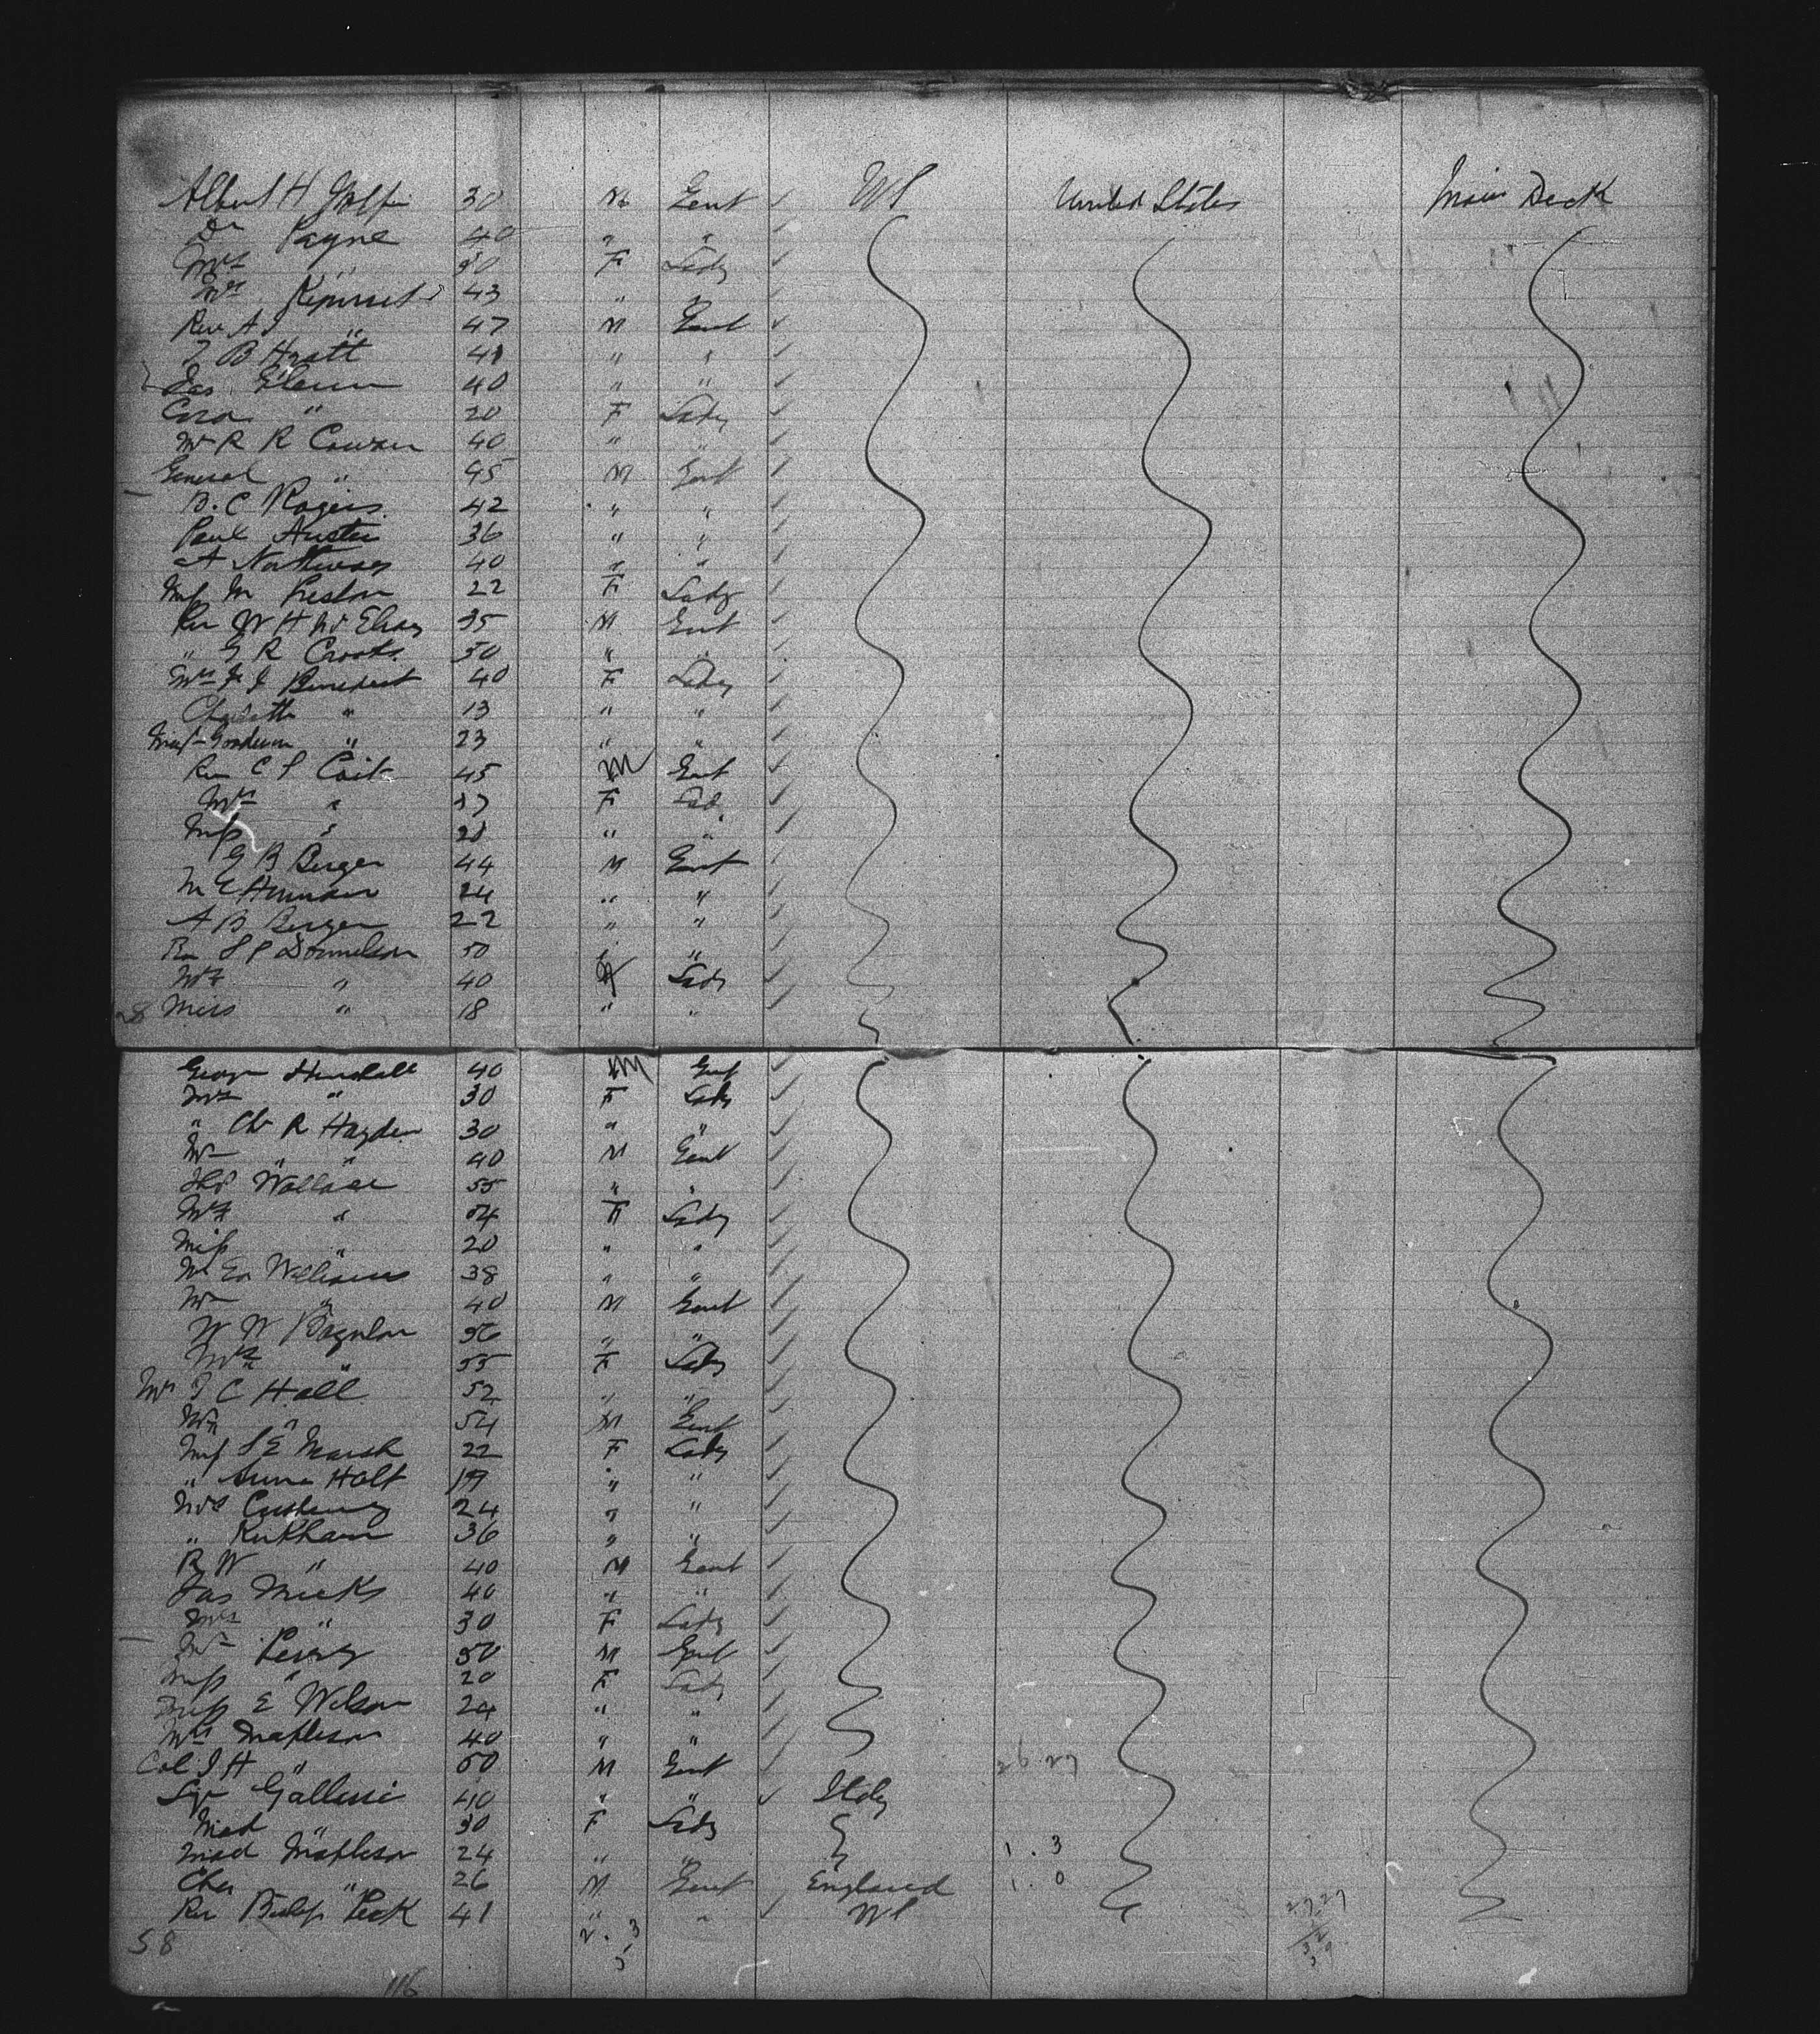 Albert H 30 M Gent US United States Main Deck
Dr Payne 40 " "
Mrs " 30 F Lady
Mrs 43 " "
Rev A J " 47 M Gent
J B Hyatt 41 " "
Jas Glenn 40 " "
Cora " 20 F Lady
Mrs R R Cowan 40 " "
General " 45 M Gent
B. C Rogers 42 " "
Paul Austin 36 " "
A 40 " "
Miss M Preston 22 F Lady
Rev W H 35 M Gent
" G R Crooks 50 " "
Mrs F J Benedict 40 F Lady
Charlotte " 13 " "
Miss Goodwin " 23 " "
Rev C P Coit 45 M Gent
Mrs " 37 F Lady
Miss " " "
G B Berger 44 M Gent
M E Herman 24 " "
A B Berger 22 " "
Rev S P Donnelson 50 " "
Mrs " 40 F Lady
28 Miss " 18 " "
George Henshall 40 M Gent
Mrs " 30 F Lady
" Ch R Hayden 30 " "
Mr " " 40 M Gent
Thos Wallace 55 " "
Mrs " 54 F Lady
Miss " 20 " "
Mrs Ed Williams 38 " "
Mr " 40 M Gent
W W 56 " "
Mrs " 55 F Lady
Mrs J C Hall 52 " "
Mr " 54 M Gent
Miss S E Marsh 22 F Lady
" Anna Holt 19 " "
Mrs 24 " "
" Kirkham 36 " "
R W " 40 M Gent
Jas Meeks 40 " "
Mrs " 30 F Lady
Mr Perry 50 M Gent
Miss " 20 F Lady
Miss E Wilson 24 " "
Mrs Mapleson 40 " "
Col J H " 50 M Gent 26 27
Sigr Gallassi 40 " " Italy
Mad " 30 F Lady
Mad Mapleson 24 " " 1 . 3
Chas " 26 M Gent England 1 . 0
Rev Bishop Peck 41 " " US
58 2 . 3
5
116